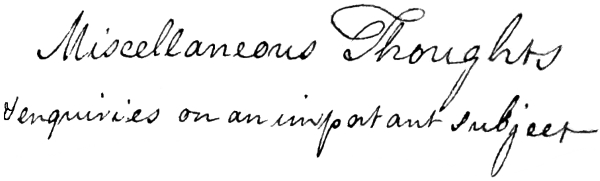 Miscellaneous Thoughts
& enquiries on an important subject